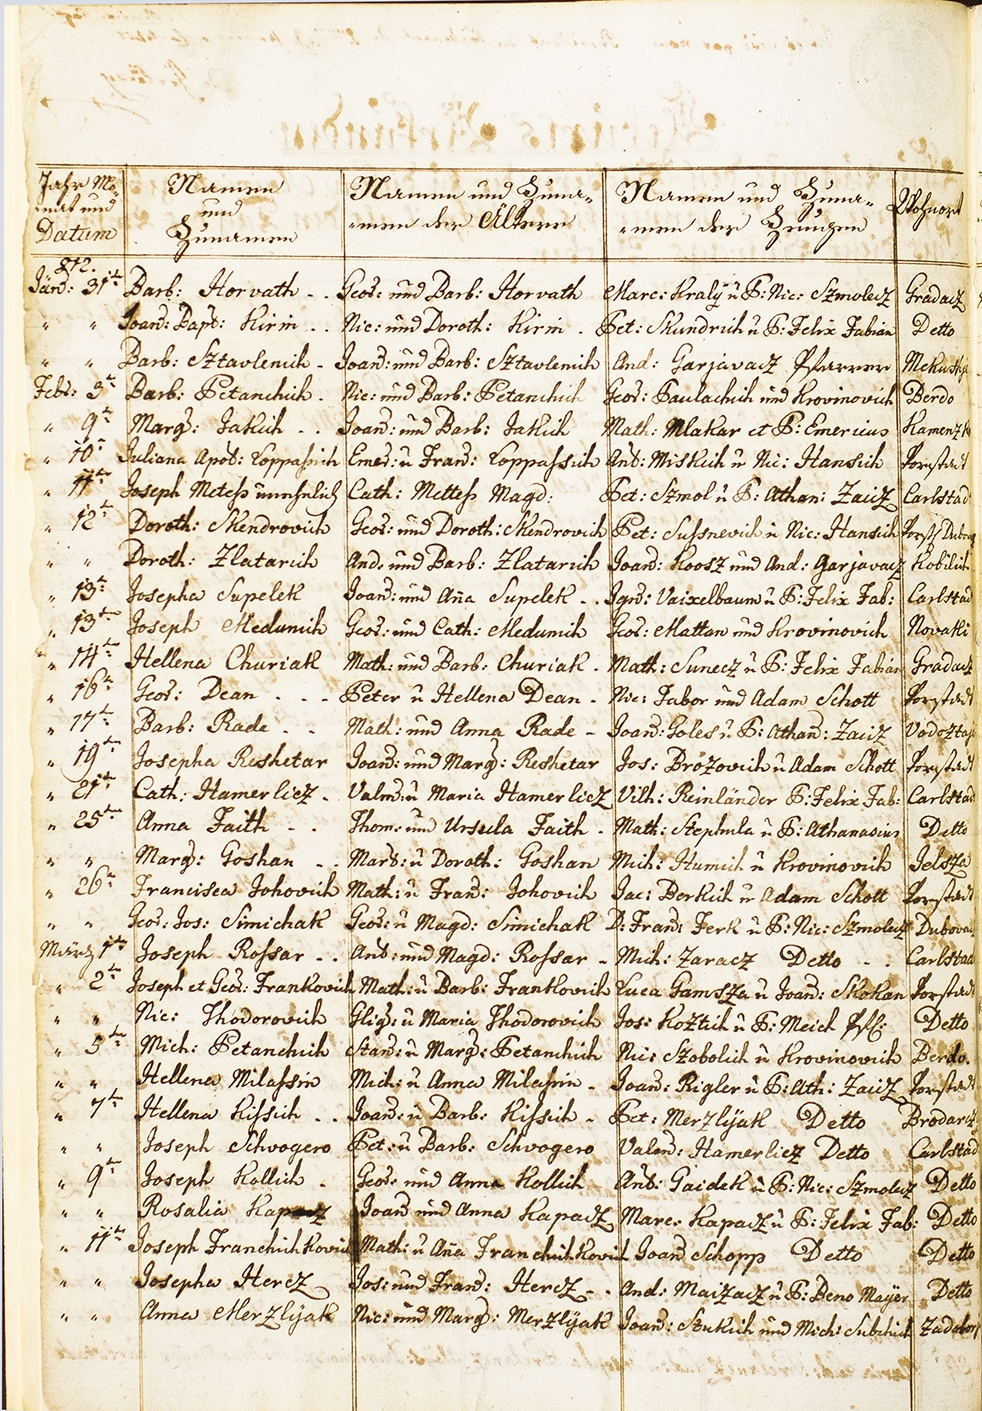 Jahr Mo- Namen Namen und Zuna- Namen und Zuna- Wohnort
nat und und -men der Älteren -men der Zeugen
Datum Zunamen
812.
Jän: 31t Barb: Horvath - - Geor: und Barb: Horvath Marc: Kralÿ ŭ P: Nic: Szmolecz Gradacz
" " Joan: Bapt: Kirin - - Nic: und Doroth: Kirin - Pet: Skundrich u P: Felix Fabian Detto
" " Barb: Sztavlenich - Joan: und Barb: Sztavlenich And: Garjavacz Pfarrer
Feb: 3t Barb: Petanchich - Nic: und Barb: Petanchich Geor: Paulachich und Krovinovich Berdo
" 9t Marg: Jakich - - Joan: und Barb: Jakich Math: Mlakar et P: Emericus
" 10t Juliana Apol: Loppassich Emer: u Fran: Loppassich Ant: Miskich u Nic: Hansich Vorstadt
" 11t Joseph Metess unehelich Cath: Mettess Magd: Pet: Szmol u P: Athan: Zaicz Carlstad
" 12t Doroth: Skendrovich Geor: und Doroth: Skendrovich Pet: Sussnevich u Nic: Hansich
" " Doroth: Zlatarich And: und Barb: Zlatarich Joan: Koosz und And: Garjavacz Kobilich
" 13t Josepha Supelek Joan: und Aña Supelek - - Ign: Vaixelbaum u P: Felix Fab: Carlstad
" 13t Joseph Medunich Geor: und Cath: Medunich Geor: Mattan und Krovinovich Novaki
" 14t Hellena Churiak Math: und Barb: Churiak - Math: Sunecz u P: Felix Fabian Gradacz
" 16t Geor: Dean - - - Peter u Hellena Dean - Nic: Fabor und Adam Schott Vorstadt
" 17t Barb: Rade - - Math: und Anna Rade - Joan: Goles u P: Athan: Zaicz
" 19t Josepha Reshetar Joan: und Marg: Reshetar Jos: Brozovich u Adam Schott Vorstadt
" 21t Cath: Hamerlicz - Valen: u Maria Hamerlicz Vilh: Reinländer P: Felix Fab: Carlstad
" 25t Anna Faith - - Thom: und Ursula Faith - Math: Stephula u P: Athanasius Detto
" " Marg: Goshan - - Mart: u Doroth: Goshan Mich: Humich u Krovinovich Jelsza
" 26t Francisca Johovich Math: u Fran: Johovich Jac: Berkich u Adam Schott Vorstadt
" " Geor: Jos: Simichak Geor: u Magd: Simichak D: Fran: Ferk u P: Nic: Szmolecz
März 1t Joseph Rossar - - Ant: und Magd: Rossar - Mich: Zaracz Detto - - Carlstad
" 2t Joseph et Geor: Frankovich Math: u Barb: Frankovich Luca Gamsza u Joan: Skokan Vorstadt
" " Nic: Thodorovich Glig: u Maria Thodorovich Jos: Koztich u P: Meich Detto
" 5t Mich: Petanchich Stan: u Marg: Petanchich Nic: Szobolich u Krovinovich Berdo.
" " Hellena Milassin Mich: u Anna Milassin - Joan: Rigler u P: Ath: Zaicz Vorstadt
" 7t Hellena Kissich - - Joan: u Barb: Kissich - Pet: Merzlÿak Detto
" " Joseph Schvogero Pet: u Barb: Schvogero Valen: Hamerlicz Detto Carlstad
" 9t Joseph Kollich - Geor: und Anna Kollich Ant: Gaidek u P: Nic: Szmolecz Detto
" " Rosalia Kapacz Joan und Anna Kapacz Marc: Kapacz u P: Felix Fab: Detto
" 11t Joseph Franchichkovich Math: u Aña Franchichkovich Joan Schopp Detto Detto
" " Josepha Hercz Jos: und Fran: Hercz - - And: Maizacz u P: Beno Mayer Detto
" " Anna Merzlÿak Nic: und Marg: Merzlÿak Joan: Stukich und Mich: Subchich